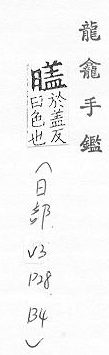 龍龕手鑑
於盖反
日色也
(日部.
V3
P28.
B4)